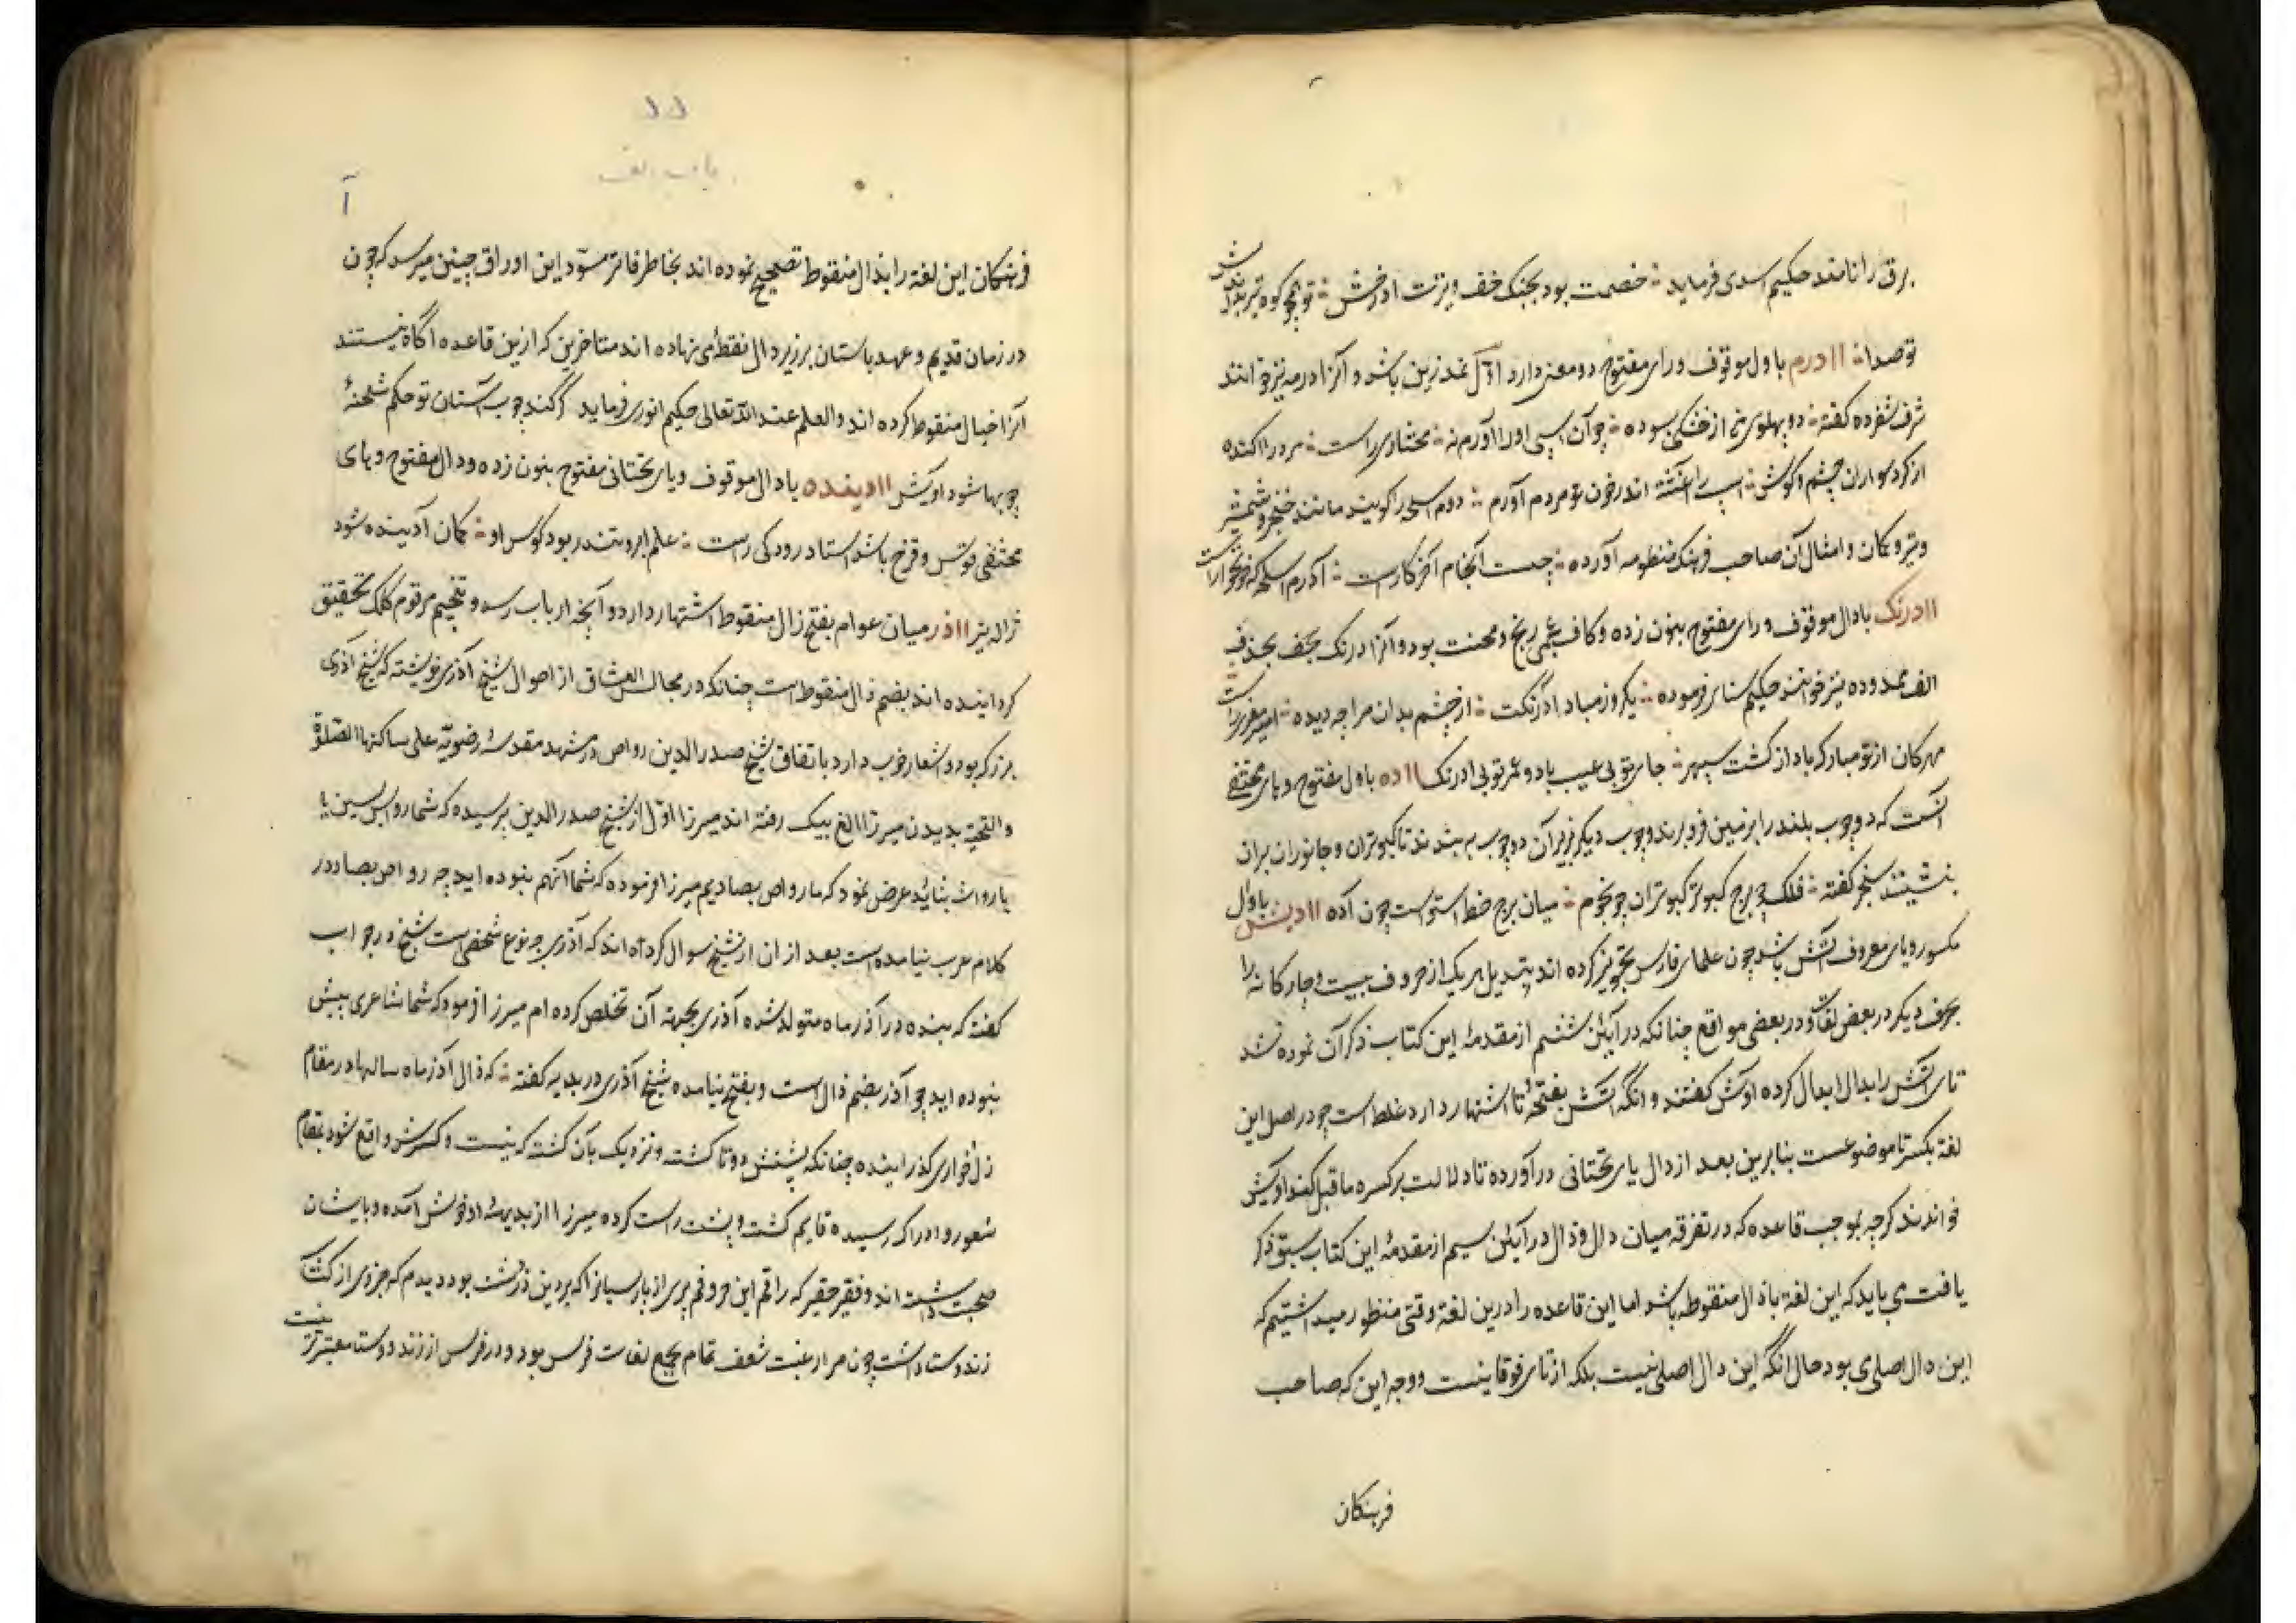 برق را نامند حکیم اسدی فرماید خصمت بود بجنک خف و تیرت ادرخش تو همچو کوه تیر بداندیش
توصدا اادرم باول موقوف و رای مفتوح دو معنی دارد اول نمد زین باشد و آنرا ادرمه نیز خوانند
شرف شفرده کفته دو پهلوی من از خشکی بسوده چو آن اسپی اورا آدرم نه مختاری راست مرد را اکنده
از کرد سواران چشم و کوش اسپ را اغشته اندر خون مردم آدرم دوم اسلحه را کویند مانند خنجر و شمشیر
و تیر و کمان و امثال آن صاحب فرهنک منظومه آورده چست انجام آخر کارست آدرم اسلحه که خونخوارست
اادرنک بادال موقوف و رای مفتوح بنون زده و کاف عجمی رنج و محنت بود و آنرا درنک بحذف
الف ممدوده نیز خوانند حکیم سنائی فرموده یکروز مباد ادرنکت از چشم بدان مراچه دیده امیر معزی راست
مهرکان از تو مبارکباد از کشت سپهر جای تو بی عیب باد و عمر تو بی ادرنک ااده باول مفتوح و های مختفی
آنست که دو چوب بلند را بر زمین فرو برند و چوب دیکر بر زبر آن دو چوب به بندند تا کبوتران و جانوران بران
بنشینند سنجر کفته فلک چو برج کبوتر کبوتران چو نجوم میان برج خط استواست چون آده اادیش باول
مکسور و یای معروف آتش باشد چون علمای فارس تجویز کرده اند بتبدیل هر یک از حروف بیست و چار کانه را
بحرف دیکر در بعض لغات و در بعضی مواقع چنانکه در آئین ششم از مقدمهٔ این کتاب ذکر آن نموده شد
تای آتش را بدال ابدال کرده ادیش کفتند و انکه آتش بفتحهٔ تا اشتهار دارد غلط است چو در اصل این
لغة بکسر تا موضوعست بنابرین بعد از دال یای تحتانی درآورده تا دلالت بر کسره ماقبل کند ادیش
خواندند کرچه بموجب قاعده که در تفرقه میان دال و ذال در آئین سیم از مقدمهٔ این کتاب سبق ذکر
یافت می باید که این لغة باذال منقوطه باشد اما این قاعده را درین لغة وقتی منظور میداشتیم که
این دال اصلی می بود حال انکه این دال اصلی نیست بلکه از تای فوقانیست و وجه این که صاحب
فرهنکان
آ
فرهنکان این لغة را بذال منقوط تصحیح نموده اند بخاطر فاتر مسوّد این اوراق چنین میرسد که چون
در زمان قدیم و عهد باستان بر زیر دال نقطه می نهاده اند متاخرین که ازین قاعده اکاه نیستند
آنرا خیال منقوط کرده اند والعلم عند الله تعالی حکیم انوری فرماید کر کند چوب آستان تو حکم شحنهٔ
چوبها شود ادیش اادینده بادال موقوف و یای تحتانی مفتوح بنون زده و دال مفتوح و های
مختفی قوس و قزح باشد استاد رودکی راست علم ابر و تندر بود کوس او کمان آدینده شود
ژاله تیر ااذر میان عوام بفتح ذال منقوط اشتهار دارد و آنچه ارباب رسد و تنجیم مرقوم کلک تحقیق
کردانیده اند بضم ذال منقوط است چنانکه در مجالس العشاق از احوال شیخ آذری نوشته که شیخ آذری
بزرک بود و اشعار خوب دارد باتفاق شیخ صدرالدین رواص در مشهد مقدسهٔ رضویّه علی ساکنها الصلوة
والتحیّة بدیدن میرزا الغ بیک رفته اند میرزا اوّل از شیخ صدرالدین پرسیده که شما رواس بسین یا
یا رواث بثائید عرض نمود که ما رواص بصادیم میرزا فرموده که شما آنهم نبوده اید چه رواص بصاد در
کلام عرب نیامده است بعد از ان از شیخ سوال کرده اند که آذری چه نوع تخلصی است شیخ در جواب
کفت که بنده در آذر ماه متولد شده آذری بجهة آن تخلص کرده ام میرزا فرمود که شما شاعری بیش
نبوده اید چو آذر بضم ذال است و بفتح نیامده شیخ آذری در بدیهه کفته که ذال آذر ماه سالها در مقام
ذل خواری کذرانیده چنانکه پشتش دوتا کشته و نزدیک بان کشته که نیست و کسرش واقع شود بمقام
شعور و ادراک رسیده قایم کشت و پشت راست کرده میرزا از بدیههٔ او خوش آمده و بایشان
صحبت داشته اند و فقیر حقیر که راقم این حروفم پیری از پارسیانرا که بر دین زردشت بود دیدم که جزوی از کتاب
زند و ستا داشت چون مرا رغبت شعف تمام بجمع لغات فرس بود و در فرس از زند و وستا معتبرتر نیست